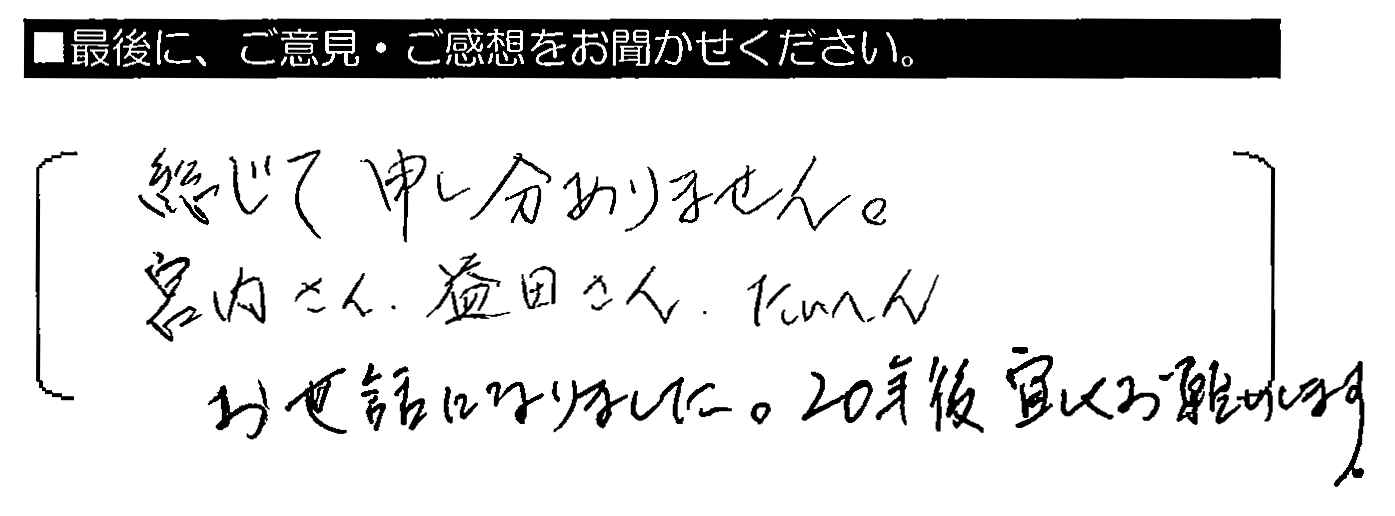 ■最後に、ご意見・ご感想をお聞かせください。
総じて申し分ありません。
宮内さん、益田さん、たいへん
お世話になりました。20年後宜しくお願いします。